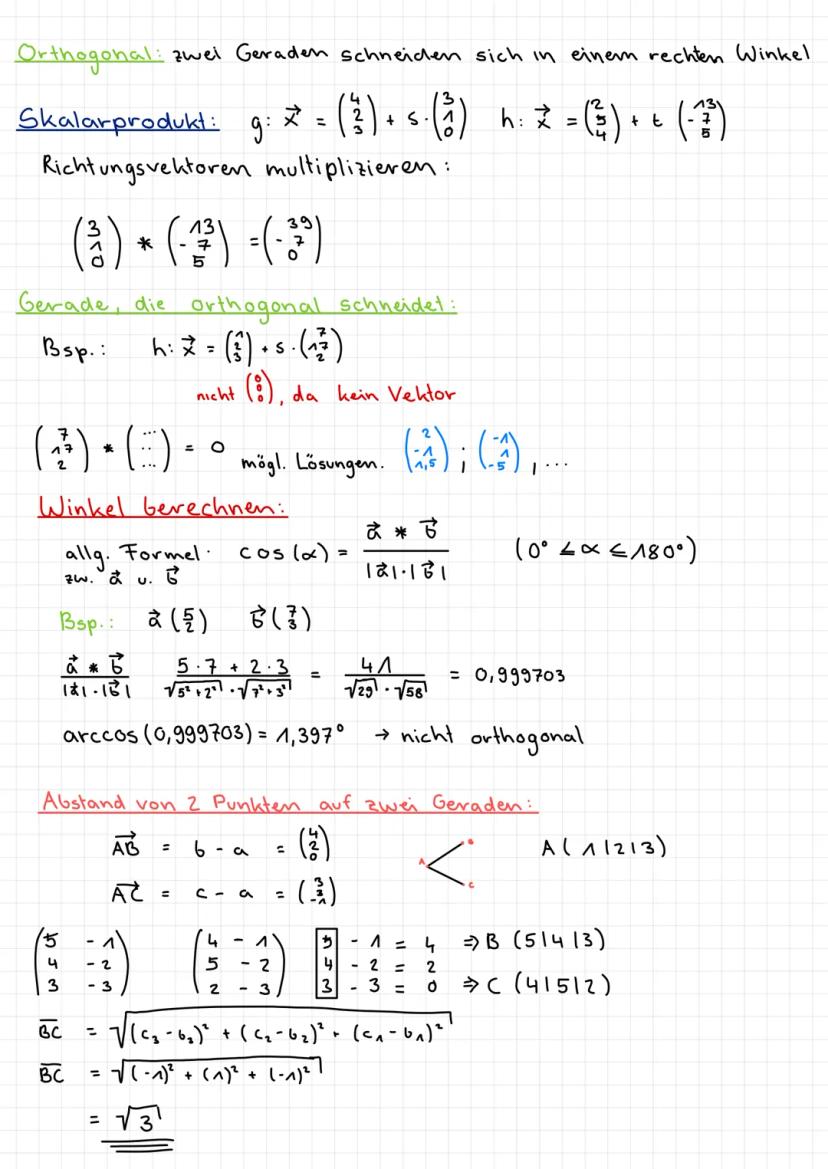 Orthogonal: zwei Geraden schneiden sich in einem rechten Winkel
Skalarprodukt: g: x⃗ = (4 2 3) + s·(3 1 0) h: x⃗ = (2 5 4) + t (13 -7 5)
Richtungsvektoren multiplizieren:
(3 1 0) * (13 -7 5) = (39 -7 0)
Gerade, die orthogonal schneidet:
Bsp.: h: x⃗ = (1 2 3) + s·(7 17 2)
nicht (0 0 0), da kein Vektor
(7 17 2) * (... .. ...) = 0 mögl. Lösungen. (2 -1 1,5) ; (-1 1 -5) , ...
Winkel berechnen:
allg. Formel· cos(α) = (a⃗ * b⃗) / (|a⃗|·|b⃗|) (0° ∠ α ≤ 180°)
zw. a⃗ u. b⃗
Bsp.: a⃗ (5 2) b⃗ (7 3)
(a⃗ * b⃗) / (|a⃗|·|b⃗|) (5·7 + 2·3) / (√(5²+2²) · √(7²+3²)) = 41 / (√29 · √58) = 0,999703
arccos(0,999703) = 1,397° → nicht orthogonal
Abstand von 2 Punkten auf zwei Geraden:
A⃗B = b - a = (4 2 0) A B C A(1|2|3)
A⃗C = c - a = (3 3 -1)
(5 - 1 (4 - 1 5 - 1 = 4 ⇒ B (5|4|3)
4 - 2 5 - 2 4 - 2 = 2
3 - 3) 2 - 3) 3 - 3 = 0 ⇒ C (4|5|2)
B̅C̅ = √((c₃-b₃)² + (c₂-b₂)² + (c₁-b₁)²)
B̅C̅ = √((-1)² + (1)² + (-1)²)
= √3